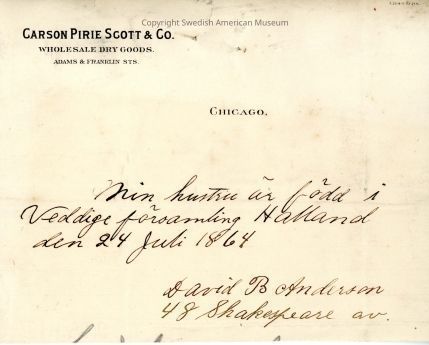 Copyright Swedish American Museum
CARSON PIRIE SCOTT & CO.
WHOLESALE DRY GOODS.
ADAMS & FRANKLIN STS.
CHICAGO,
Min hustru är född i
Veddige församling Halland
den 24 Juli 1864
David B Anderson
48 Shakespeare av.